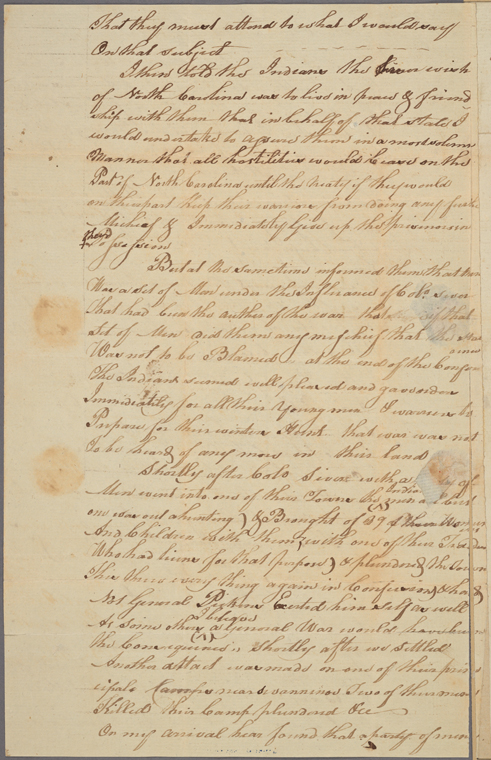 That they must attend to what I would say
On that subject
I then told the Indians the wish
of North Carolina was to live in peace & friend
ship with them that in behalf of that state I
would undertake to assure them in a most solemn
Mannor that all hostilities would Cease on the
Part of North Carolina until the treaty if they would
on their part Keep their warriors from doing any further
Mischief & Immediately Give up the prisoners in
their
Possession
But at the same time informed them that there
Was a set of Men under the Influence of Colo. Sevier
That had been the author of the war that if that
set of Men did them any mischief that the State
Was not to be Blamed at the end of the Conference
The Indians seemed well pleased and gave orders
Immidiately for all their Young men & warriors to
Prepare for their winter Hunt that war was not
To be heard of any more in their land
Shortly after Colo Sivear with a of
Men went into one of their Towns the Indian men
one was out a hunting) & Brought of 29 of their Women
And Children with them, with one of their Traders
Who had liveed for that purpose) & plundered the Town
This threw every thing again in Confusion) & had
Not General Pickens Exerted him self as well
As Some others a General War would have been
the Consequence Shortly after we settled
Another attact was made on one of their prin
cipale Camps near Two of their men
Killed their Camp plundered &c
On my arrival hear found that a party of men